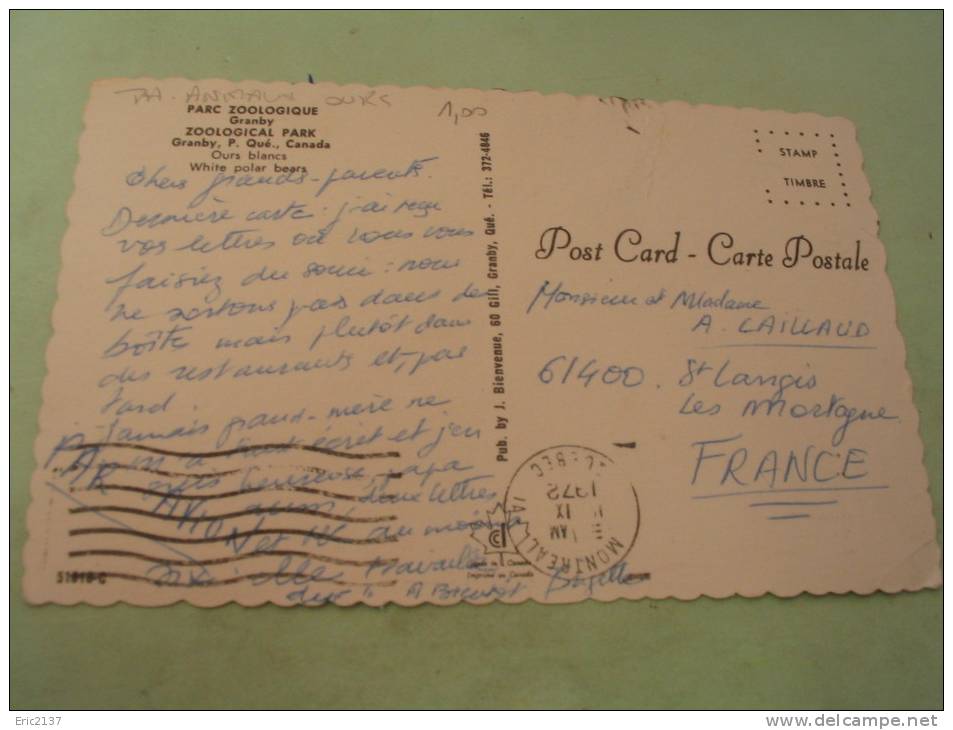 PARC ZOOLOGIQUE
Granby
ZOOLOGICAL PARK
Granby, P. Qué., Canada
Ours blancs
White polar bears
ANIMAUX OURS
1,00
Chers grands-parents.
Dernière carte. j'ai reçu
vos lettres où vous vous
faisiez du souci : nous
ne sortons pas dans des
boîtes mais plutôt dans
des restaurants et, pas
tard.
Jamais grand-mère ne
m'a tant écrit et j'en
suis heureuse, papa
aussi, deux lettres
et au moins
elle travaille
A Bientôt
51818-C
Pub. by J. Bienvenue, 60 Gill, Granby, Qué. - Tél.: 372-4846
STAMP
TIMBRE
Post Card - Carte Postale
Monsieur et Madame
A. CAILLAUD
61400. St Langis
Les Mortagne
FRANCE
MONTREAL
QUEBEC
AM
IX
1972
Canada
Imprimé au Canada
Eric2137
www.delcampe.net